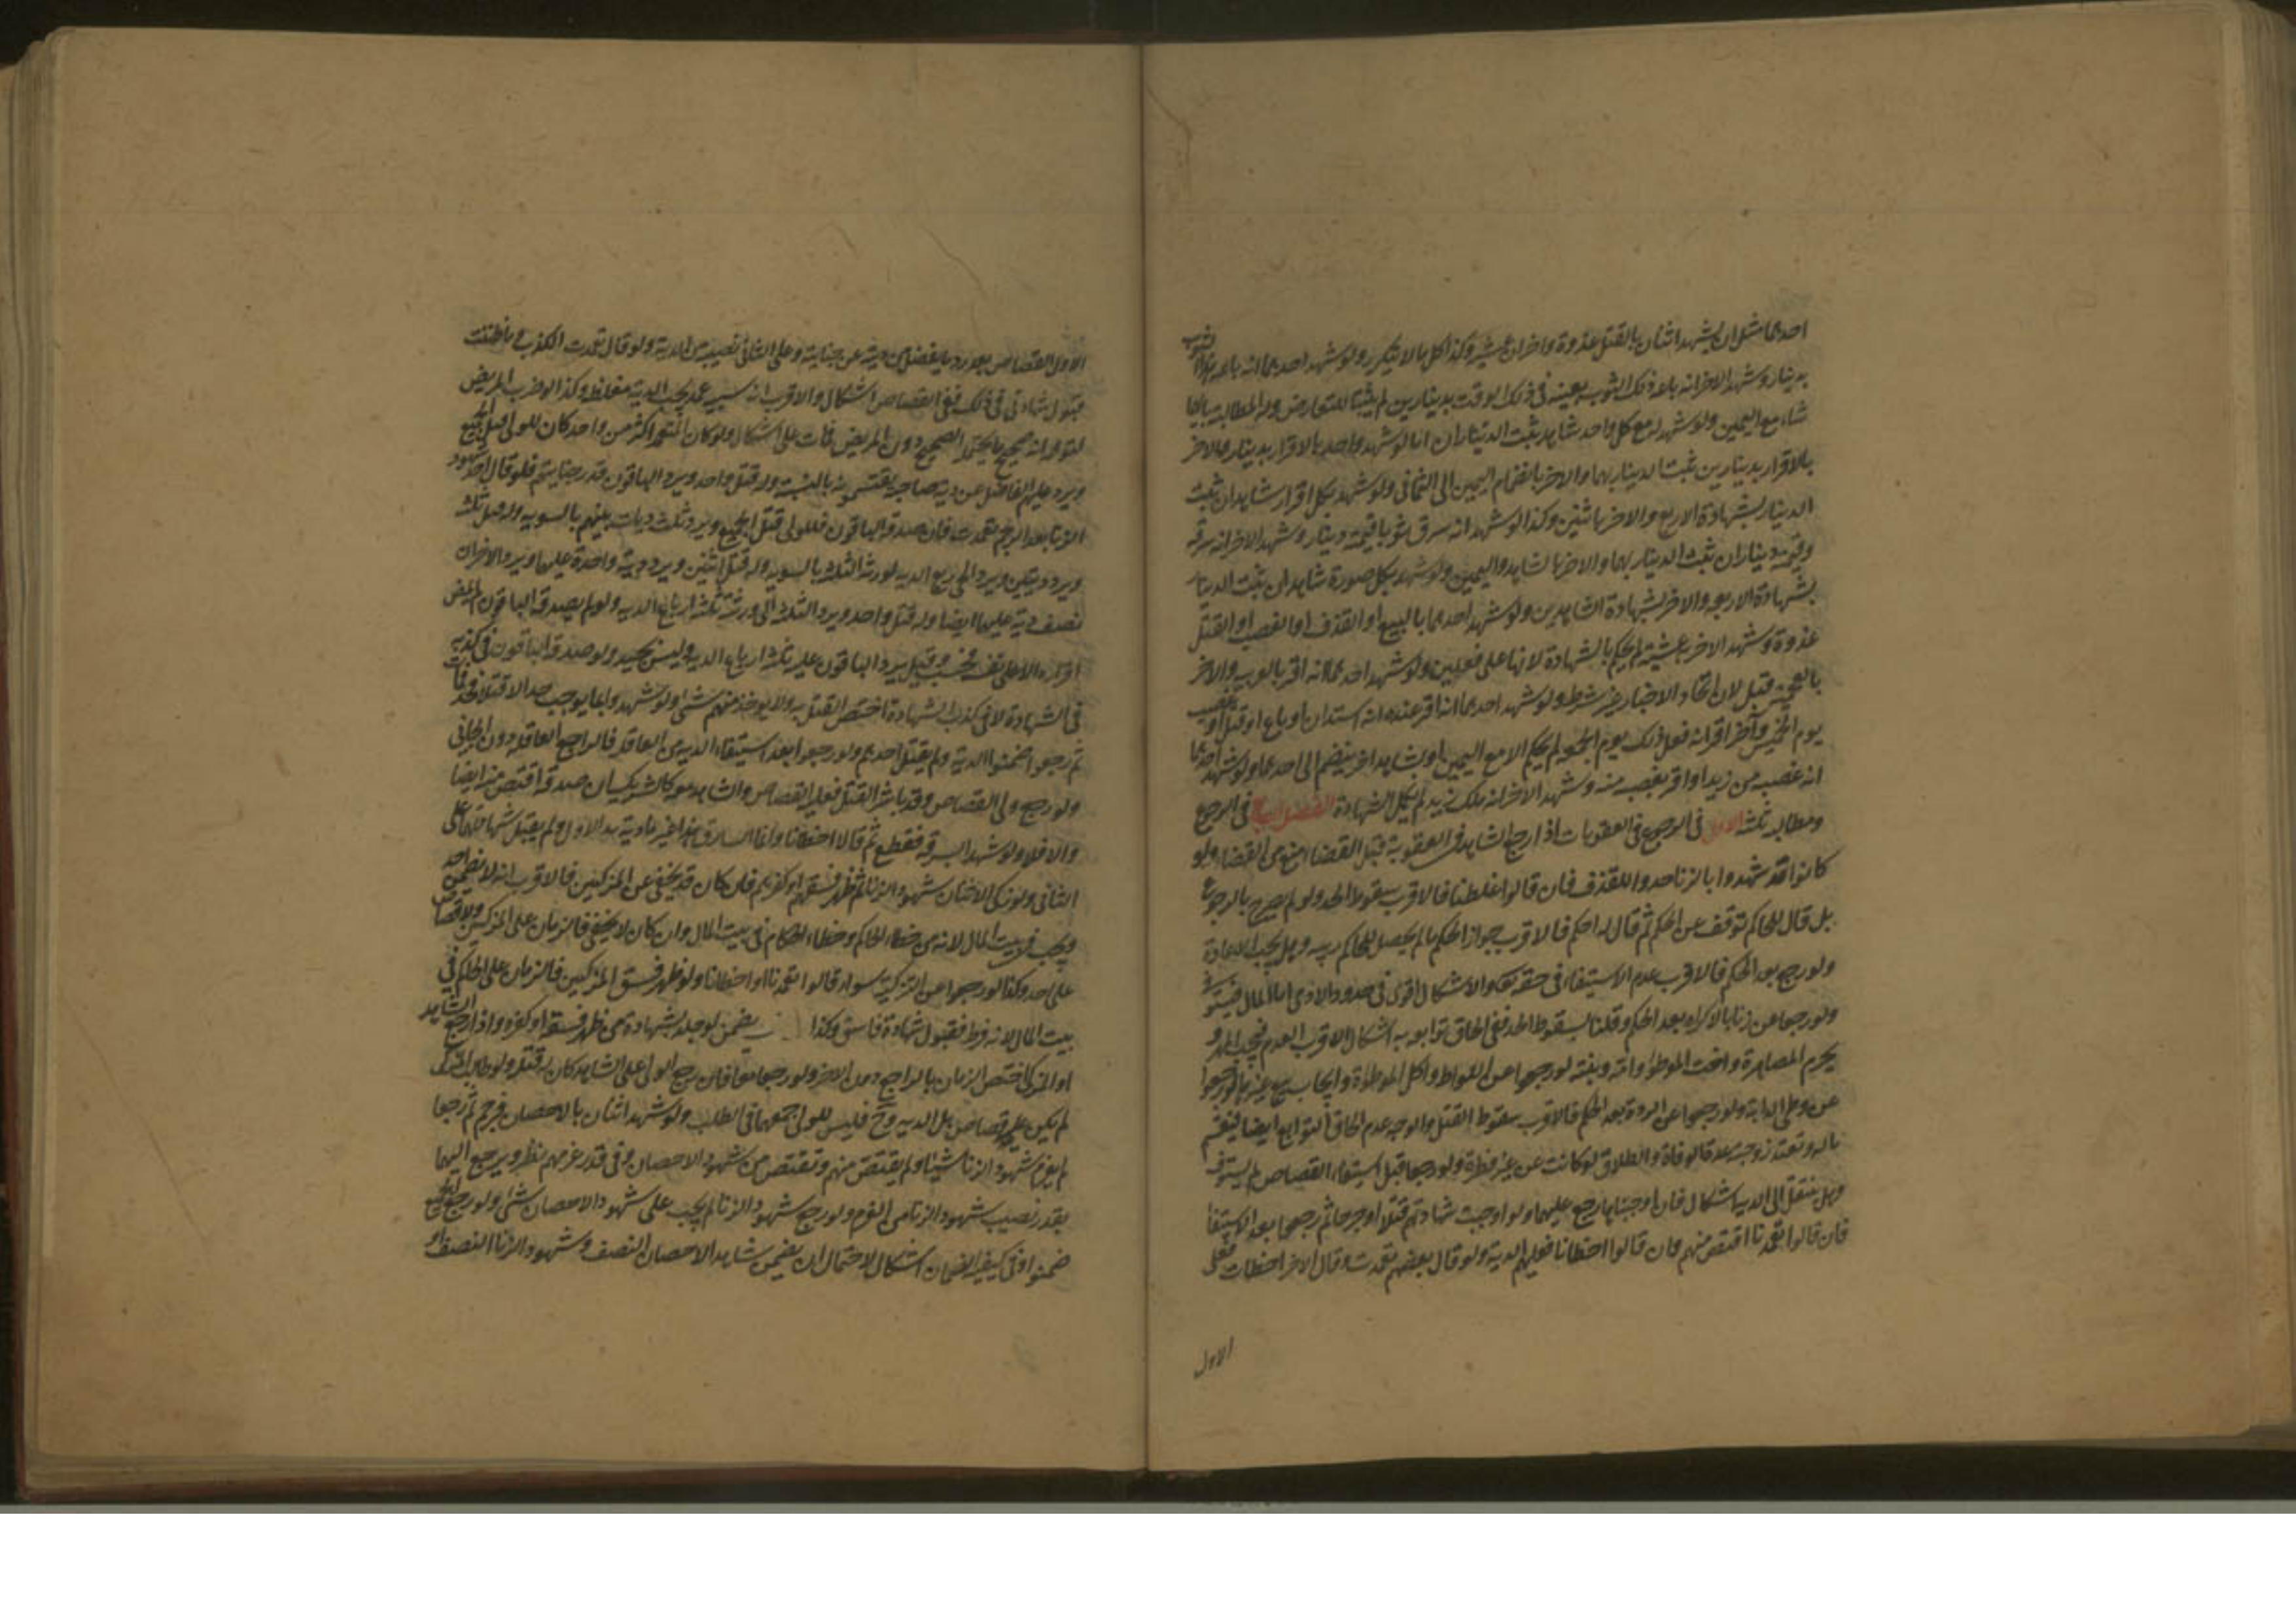 احدهما مثل ان يشهد اثنان بالقتل غدوة واخران عشية وكذا كل ما لا يتكرر ولو شهد احدهما انه باعه هذا الثوب
بدينار وشهد الاخر انه باعه ذلك الثوب بعينه في ذلك الوقت بدينارين لم يثبتا للتعارض وله المطالبة بايهما
شاء مع اليمين ولو شهد له مع كل واحد شاهد ثبت الديناران اما لو شهد واحد بالاقرار بدينار والاخر
بالاقرار بدينارين ثبت الدينار بهما والاخر بانضمام اليمين الى الثاني ولو شهد بكل اقرار شاهدان ثبت
الدينار بشهادة الاربع والاخر باثنين وكذا لو شهد انه سرق ثوبا قيمته دينار وشهد الاخر انه سرقه
وقيمته ديناران ثبت الدينار بهما والاخر بالشاهد واليمين ولو شهد بكل صورة شاهدان ثبت الدينار
بشهادة الاربعة والاخر بشهادة الشاهدين ولو شهد احدهما بالبيع او القذف او الغصب او القتل
غدوة وشهد الاخر به عشية لم يحكم بالشهادة لانها على فعلين ولو شهد احدهما انه اقر بالعربية والاخر
بالعجمية قبل لان اتحاد الاخبار غير شرط ولو شهد احدهما انه اقر عنده انه استدان او باع او قتل او غصب
يوم الخميس وآخر اقر انه فعل ذلك يوم الجمعة لم يحكم الا مع اليمين او بشاهد اخر ينضم الى احدهما ولو شهد احدهما
انه غصبه من زيد او اقر بغصبه منه وشهد الاخر انه ملك زيد لم تكمل الشهادة الفصل السابع في الرجوع
ومطالبه ثلثة الاول في الرجوع في العقوبات اذا رجع الشاهد في العقوبة قبل القضاء منع من القضاء ولو
كانوا قد شهدوا بالزنا حدوا للقذف فان قالوا غلطنا فالاقرب سقوط الحد ولو لم يصرح بالرجوع
بل قال للحاكم توقف عن الحكم ثم قال له احكم فالاقرب جواز الحكم ما لم يحصل للحاكم ريبه وهل يجب الاعادة
ولو رجع بعد الحكم فالاقرب عدم الاستيفاء في حقه تعالى والاشكال اقوى في حدود الادمي اما المال فيستوفى
ولو رجعا عن زنا بالاكراه بعد الحكم وقلنا بسقوط الحد ففي الحاق توابعه به اشكال الاقرب العدم فيجب المهر و
يحرم المصاهرة واخت الموطوء وامه وبنته لو رجعوا عن اللواط واكل الموطؤة وايجاب بيع غيرها لو رجعوا
عن وطى الدابة ولو رجعوا عن الردة بعد الحكم فالاقرب سقوط القتل والوجه عدم الحاق التوابع ايضا فيقسم
ماله وتعتد زوجته عدة الوفاة والطلاق لو كانت عن غير فطرة ولو رجعا قبل استيفاء القصاص لم يستوف
وهل ينتقل الى الدية اشكال فان اوجبناها رجع عليهما ولو اوجبت شهادتهم قتلا او جرحا ثم رجعوا بعد الاستيفا
فان قالوا تعمدنا اقتص منهم وان قالوا اخطانا فعليهم الدية ولو قال بعضهم تعمدت وقال الاخر اخطات فعلى
الاول
الاول القصاص بعد رد ما يفضل من ديته عن جنايته وعلى الثاني نصيبه من الدية ولو قال تعمدت الكذب وما ظننت
قبول شهادتي في ذلك ففي القصاص اشكال والاقرب انه شبيه عمد يجب الدية مغلظة وكذا لو ضرب المريض
لتوهمه انه صحيح ما يحتمله الصحيح دون المريض فمات على اشكال ولو كان المتعمد اكثر من واحد كان للولي قتل الجميع
ويرد عليهم الفاضل عن دية صاحبه يقتسمونه بالنسبة وله قتل واحد ويرد الباقون قدر جنايتهم فلو قال احد شهود
الزنا بعد الرجم تعمدت فان صدقه الباقون فللولي قتل الجميع ويرد ثلث ديات بينهم بالسوية وله قتل ثلثة
ويرد ديتين ويرد الحي ربع الدية لورثة الثلثة بالسوية وله قتل اثنين ويرد دية واحدة عليهما ويرد الاخران
نصف دية عليهما ايضا وله قتل واحد ويرد الثلثة الى ورثته ثلثة ارباع الدية ولو لم يصدقه الباقون لم يمض
اقراره الا على نفسه فحسب وقيل يرد الباقون عليه ثلثة ارباع الدية وليس بجيد ولو صدقه الباقون في كذبه
في الشهادة لا في كذب الشهادة اختص القتل به ولا يؤخذ منهم شئ ولو شهدوا بما يوجب حدا لا قتلا فحد فمات
ثم رجعوا ضمنوا الدية ولم يقتل احدهم ولو رجعوا بعد استيفاء الدية من العاقلة فالراجع العاقلة دون الجاني
ولو رجع ولي القصاص وقد باشر القتل فعليه القصاص والشاهد معه كالشريك ان صدقه اقتص منه ايضا
والا فلا ولو شهدا بسرقة فقطع ثم قالا اخطانا وانما السارق هذا غرما دية يد الاول ولم يقبل شهادتهما على
الثاني ولو زكى الاثنان شهود الزنا ثم ظهر فسقهم او كفرهم فان كان قد يخفى عن المزكيين فالاقرب انه لا يضمن احد
ويجب في بيت المال لانه من خطاء الحاكم وخطاء الحكام في بيت المال وان كان لا يخفى فالضمان على المزكيين ولا قصاص
على احد وكذا لو رجعوا عن التزكية سواء قالوا تعمدنا او اخطانا ولو ظهر فسق المزكيين فالضمان على الحاكم في
بيت المال لانه فرط فقبول شهادة فاسق وكذا يضمن لو جلد بشهادة من ظهر فسقه او كفره واذا رجع الشاهد
او المزكى اختص الضمان بالراجع دون الاخر ولو رجعا معا فان رجع الولى على الشاهد كان له قتله ولو طالب المزكى
لم يكن عليه قصاص بل الدية وح فليس للولي جمعهما في الطلب ولو شهد اثنان بالاحصان فرجم ثم رجعا
لم يغرم شهود الزنا شيئا ولم يقتص منهم وتقتص من شهود الاحصان وفي قدر غرمهم نظر ويرجع اليهما
بقدر نصيب شهود الزنا من الغرم ولو رجع شهود الزنا لم يجب على شهود الاحصان شئ ولو رجع الجميع
ضمنوا وفي كيفية الضمان اشكال لاحتمال ان يضمن شاهد الاحصان النصف وشهود الزنا النصف او